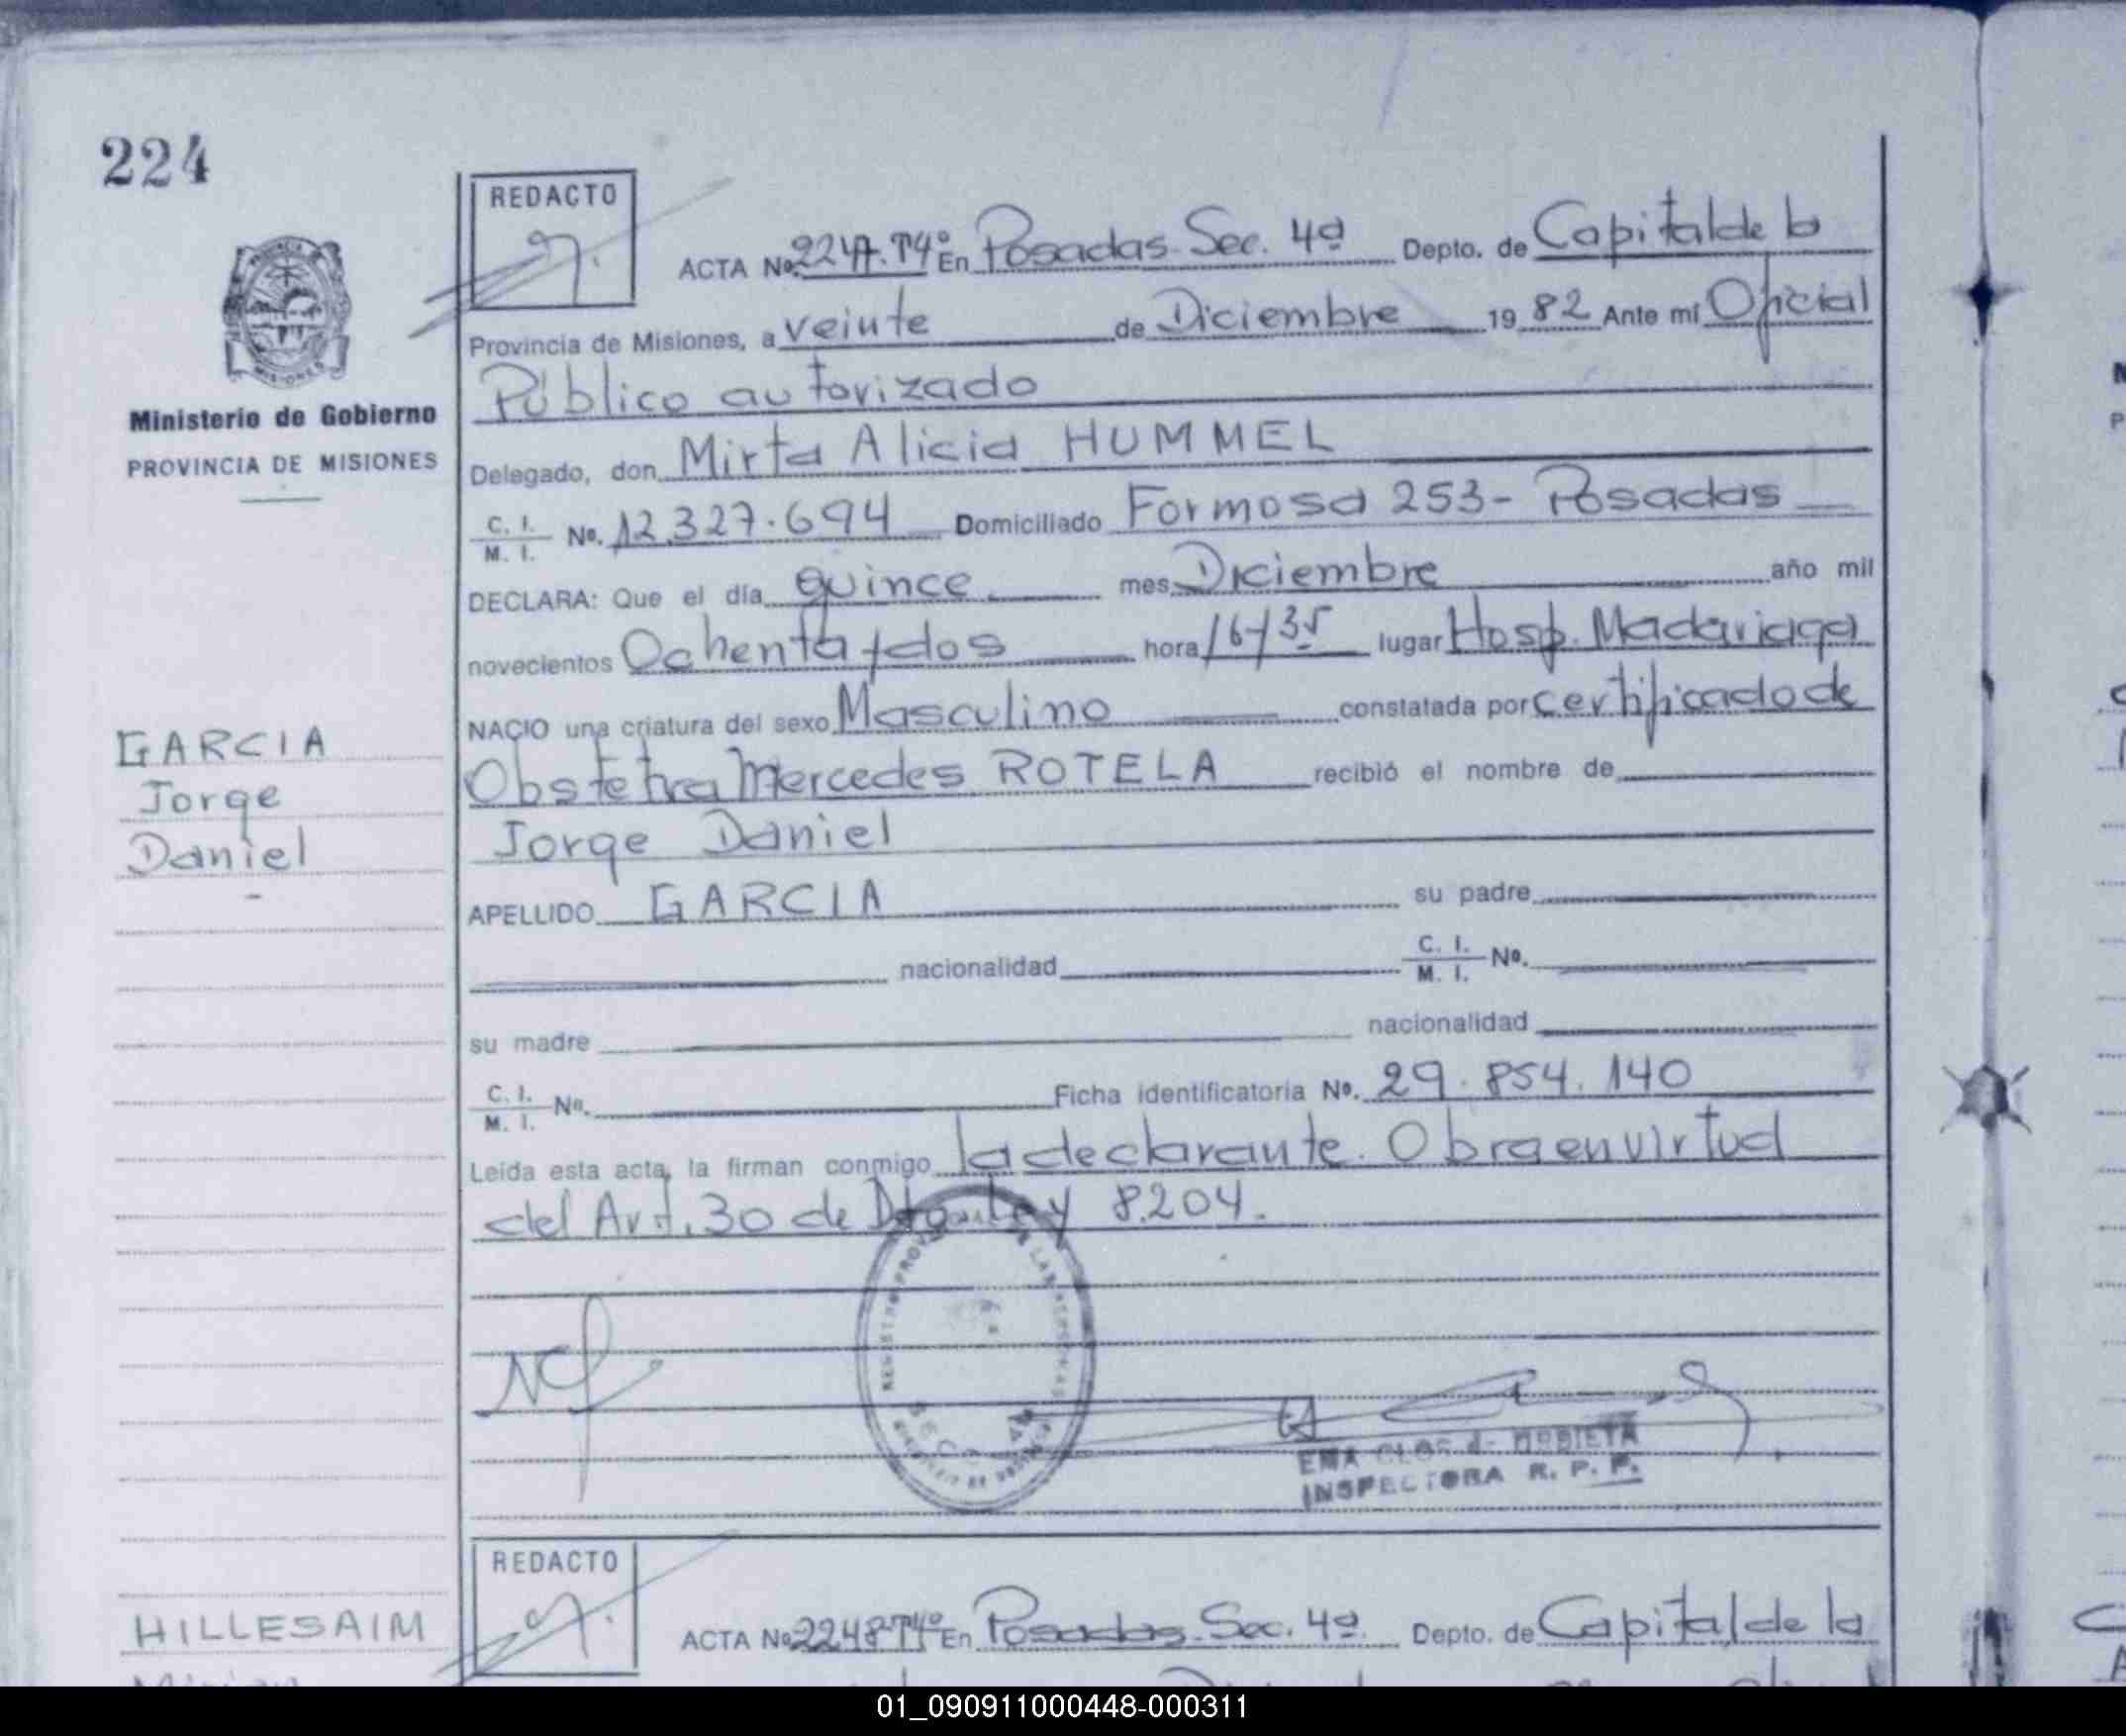 224
REDACTO
ACTA Nº 2247. Tº 4º En Posadas Sec. 4ª Depto. de Capital de la
Provincia de Misiones, a veinte de Diciembre 19 82 Ante mí Oficial
Público autorizado
Ministerio de Gobierno
PROVINCIA DE MISIONES
Delegado, don Mirta Alicia HUMMEL
C. I. / M. I. Nº. 12.327.694 Domiciliado Formosa 253 - Posadas
DECLARA: Que el día quince mes Diciembre año mil
novecientos Ochenta y dos hora 16/35 lugar Hosp. Madariaga
NACIO una criatura del sexo Masculino constatada por certificado de
Obstetra Mercedes ROTELA recibió el nombre de
Jorge Daniel
GARCIA
Jorge
Daniel
APELLIDO GARCIA su padre
nacionalidad C. I. / M. I. Nº.
su madre nacionalidad
C. I. / M. I. Nº. Ficha identificatoria Nº. 29.854.140
Leída esta acta, la firman conmigo la declarante. Obra en virtud
del Art. 30 de Ley 8.204.
INSPECTORA R. P. P.
REDACTO
HILLESAIM
ACTA Nº 2248 Tº 4º En Posadas Sec. 4ª Depto. de Capital de la
01_090911000448-000311